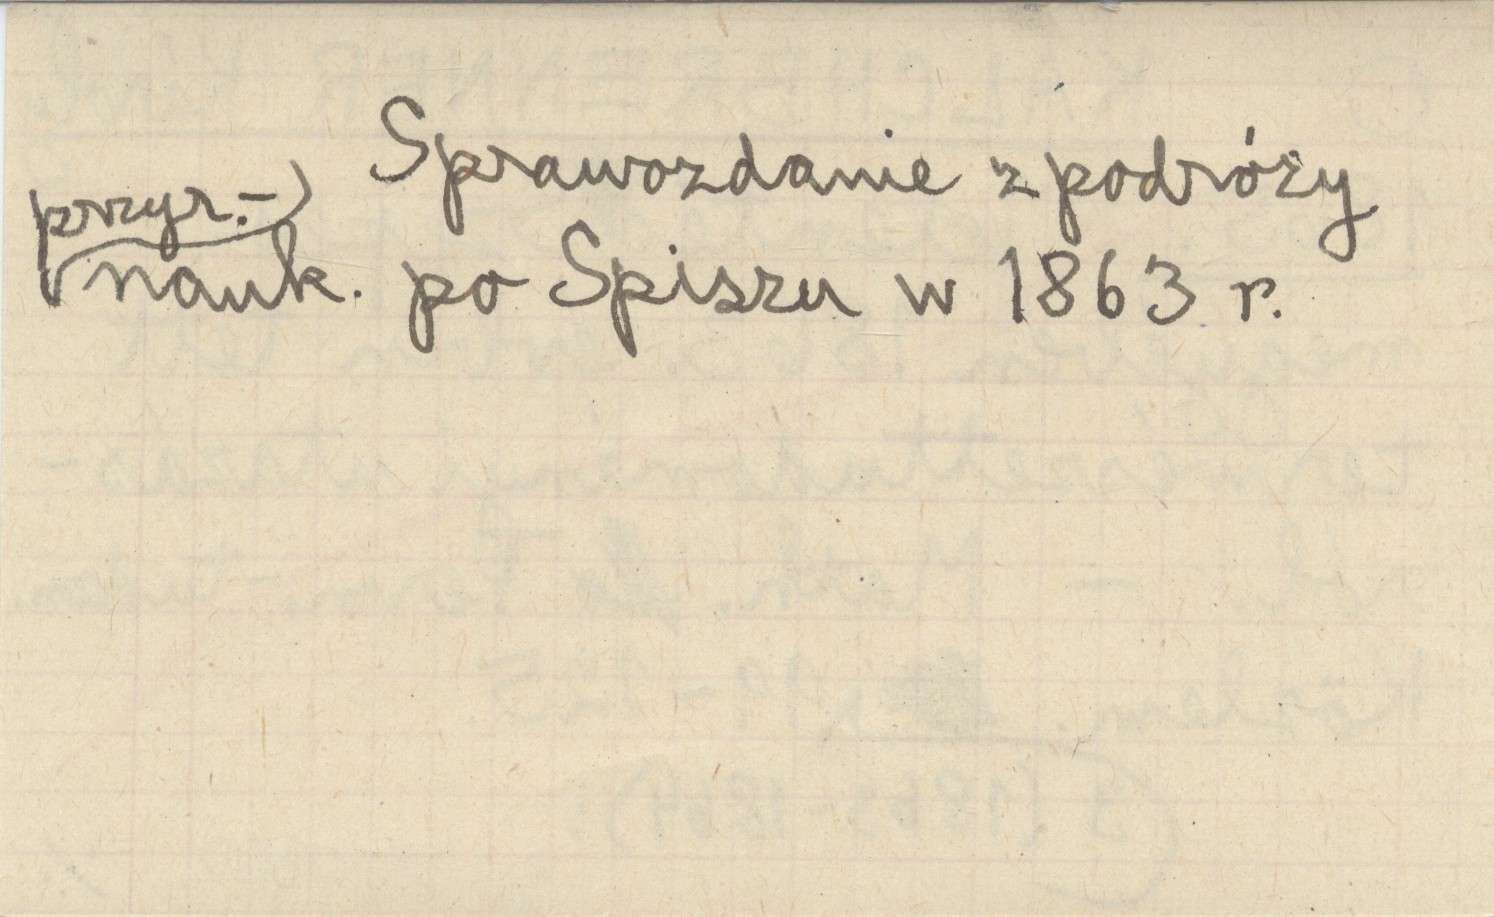 Sprawozdanie z podróży
przyr.-
nauk. po Spiszu w 1863 r.